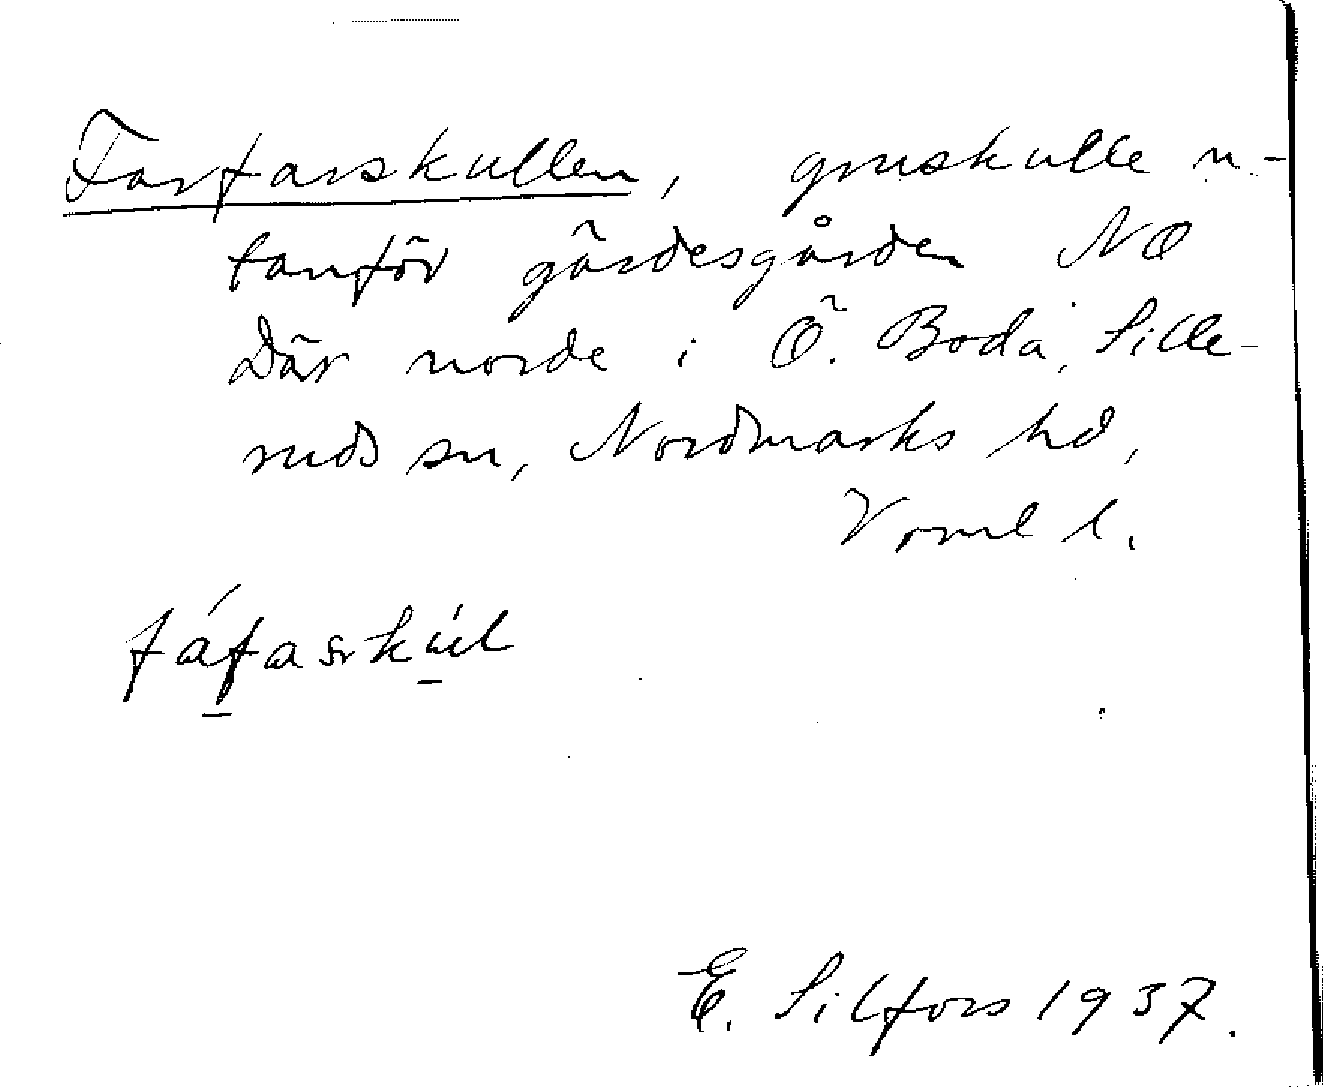 Farfarskullen, gruskulle u-
tanför gärdesgården NO
Där norde i Ö. Boda, Sille-
ruds sn, Nordmarks hd,
Vrml l.
fáfaskúl
E. Silfors 1937.